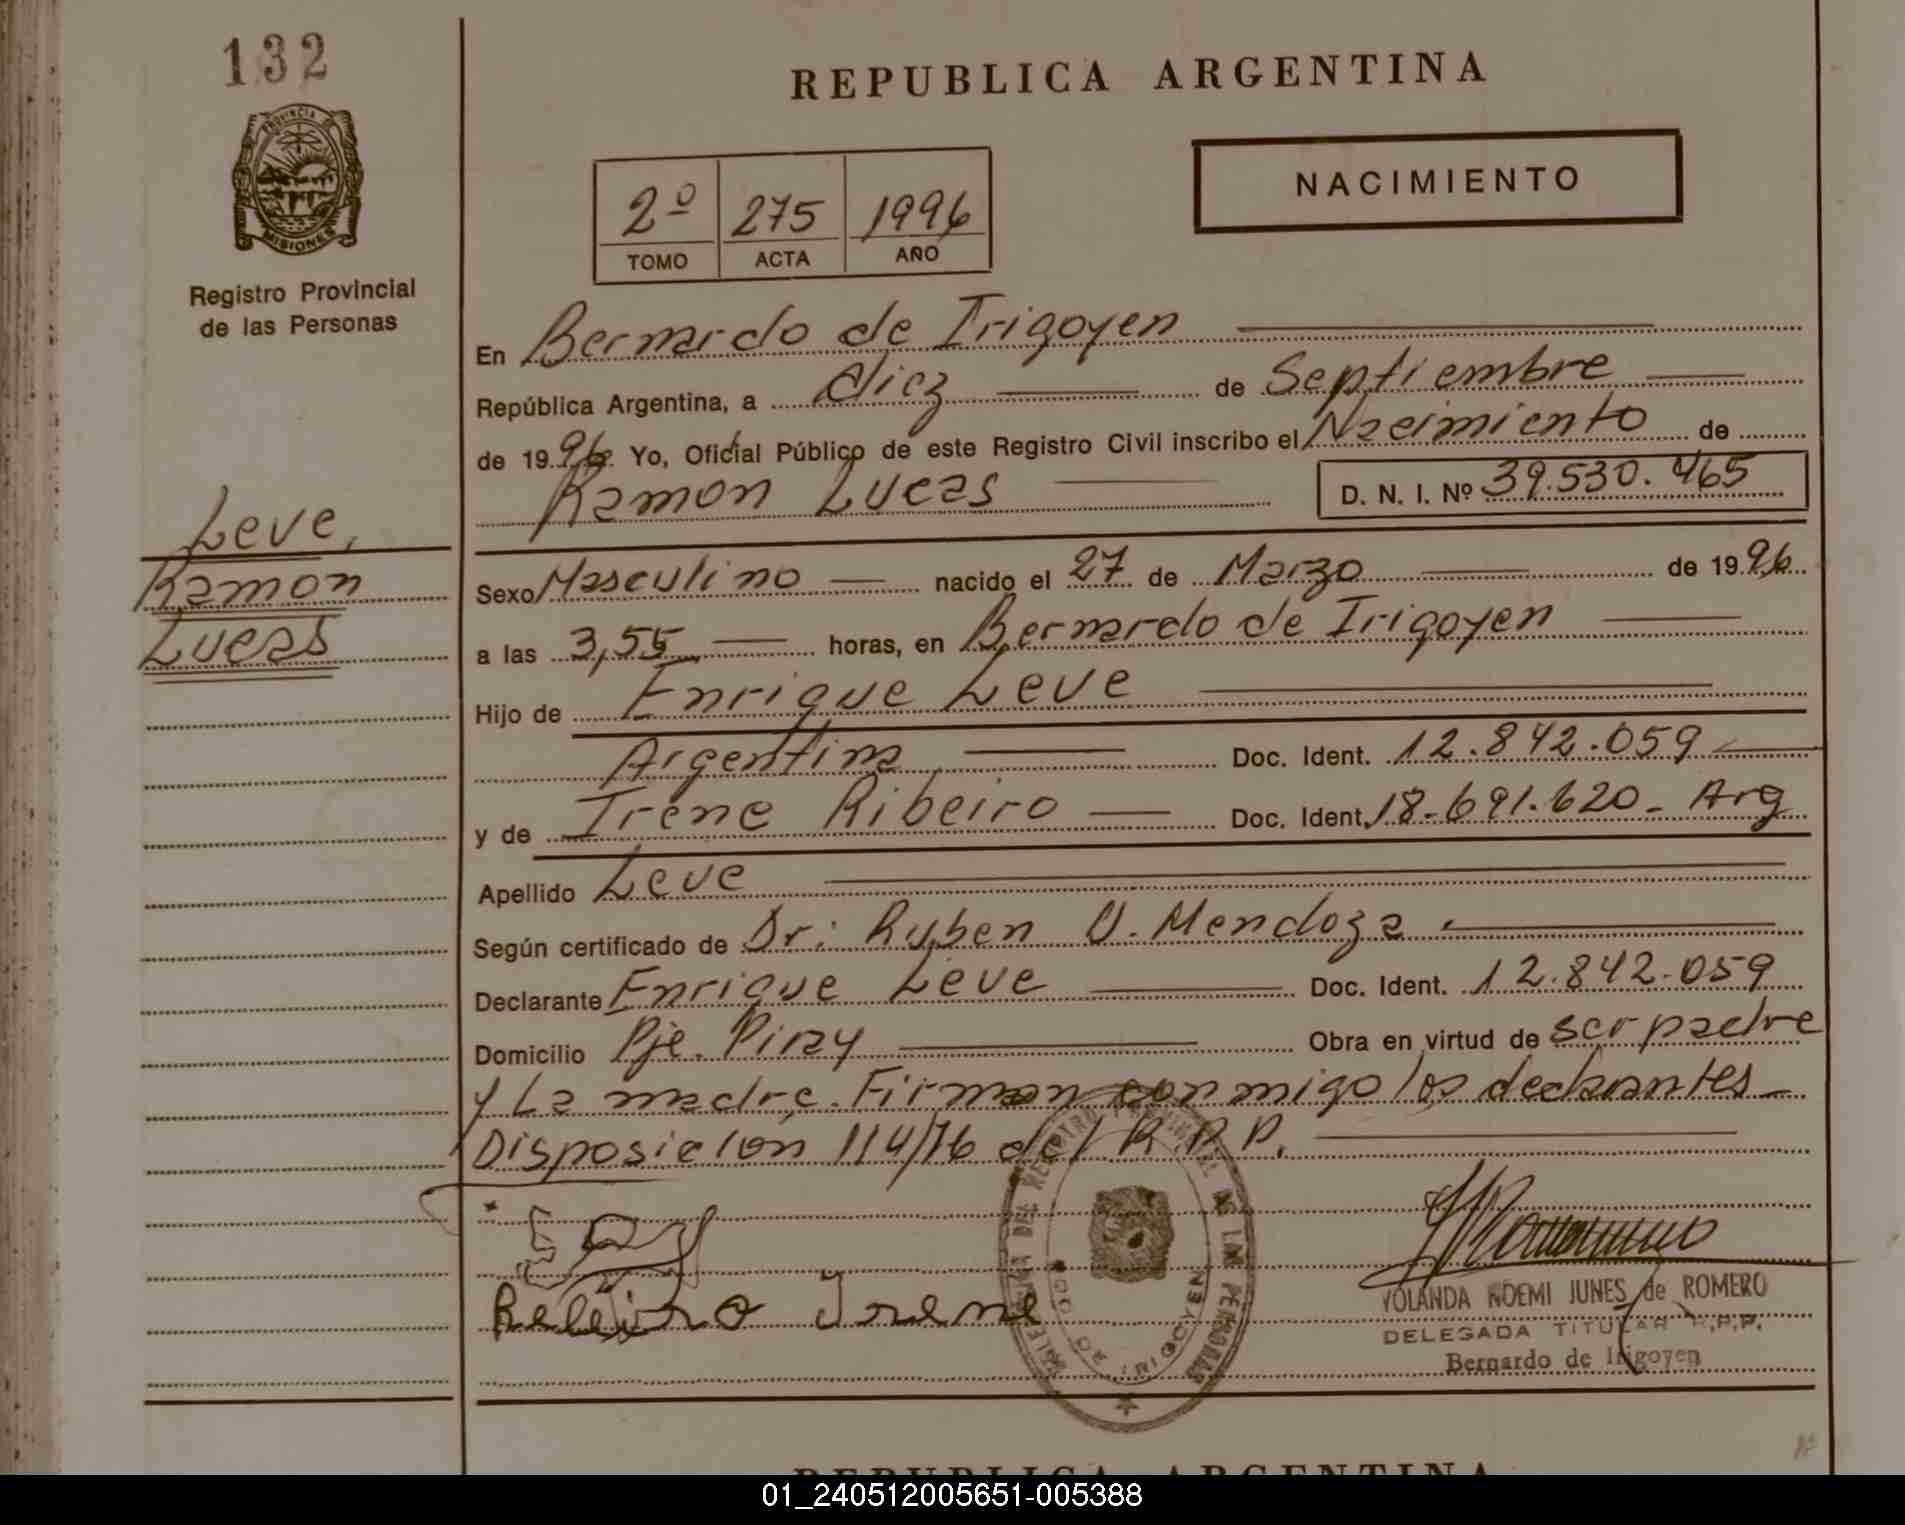 132
PROVINCIA DE
MISIONES
Registro Provincial
de las Personas
Leve,
Ramon
Lucas
REPUBLICA ARGENTINA
NACIMIENTO
2º 275 1996
TOMO ACTA AÑO
En Bernardo de Irigoyen
República Argentina, a diez de Septiembre
de 1996 Yo, Oficial Público de este Registro Civil inscribo el Nacimiento de
Ramon Lucas D. N. I. Nº 39.530.465
Sexo Masculino nacido el 27 de Marzo de 1996
a las 3,55 horas, en Bernardo de Irigoyen
Hijo de Enrique Leve
Argentina Doc. Ident. 12.842.059
y de Irene Ribeiro Doc. Ident. 18.691.620 - Arg
Apellido Leve
Según certificado de Dr: Ruben U. Mendoza
Declarante Enrique Leve Doc. Ident. 12.842.059
Domicilio Pje. Piray Obra en virtud de ser padre
y La madre. Firman conmigo los declarantes
Disposicion 114/76 del R.P.P.
Releiro Irene
DE IRIGOYEN
YOLANDA NOEMI JUNES de ROMERO
DELEGADA TITULAR R.P.P.
Bernardo de Irigoyen
REPUBLICA ARGENTINA
01_240512005651-005388